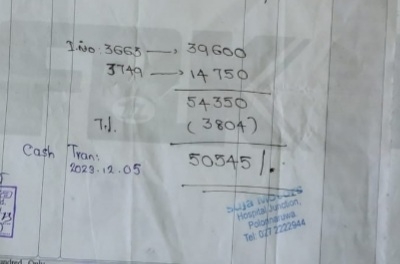 I.No: 3663 → 39600
3749 → 14750
54350
7%. (3804)
50545/.
Cash Tran:
2023.12.05
Hospital Junction,
Polonnaruwa.
Tel: 027 2222944